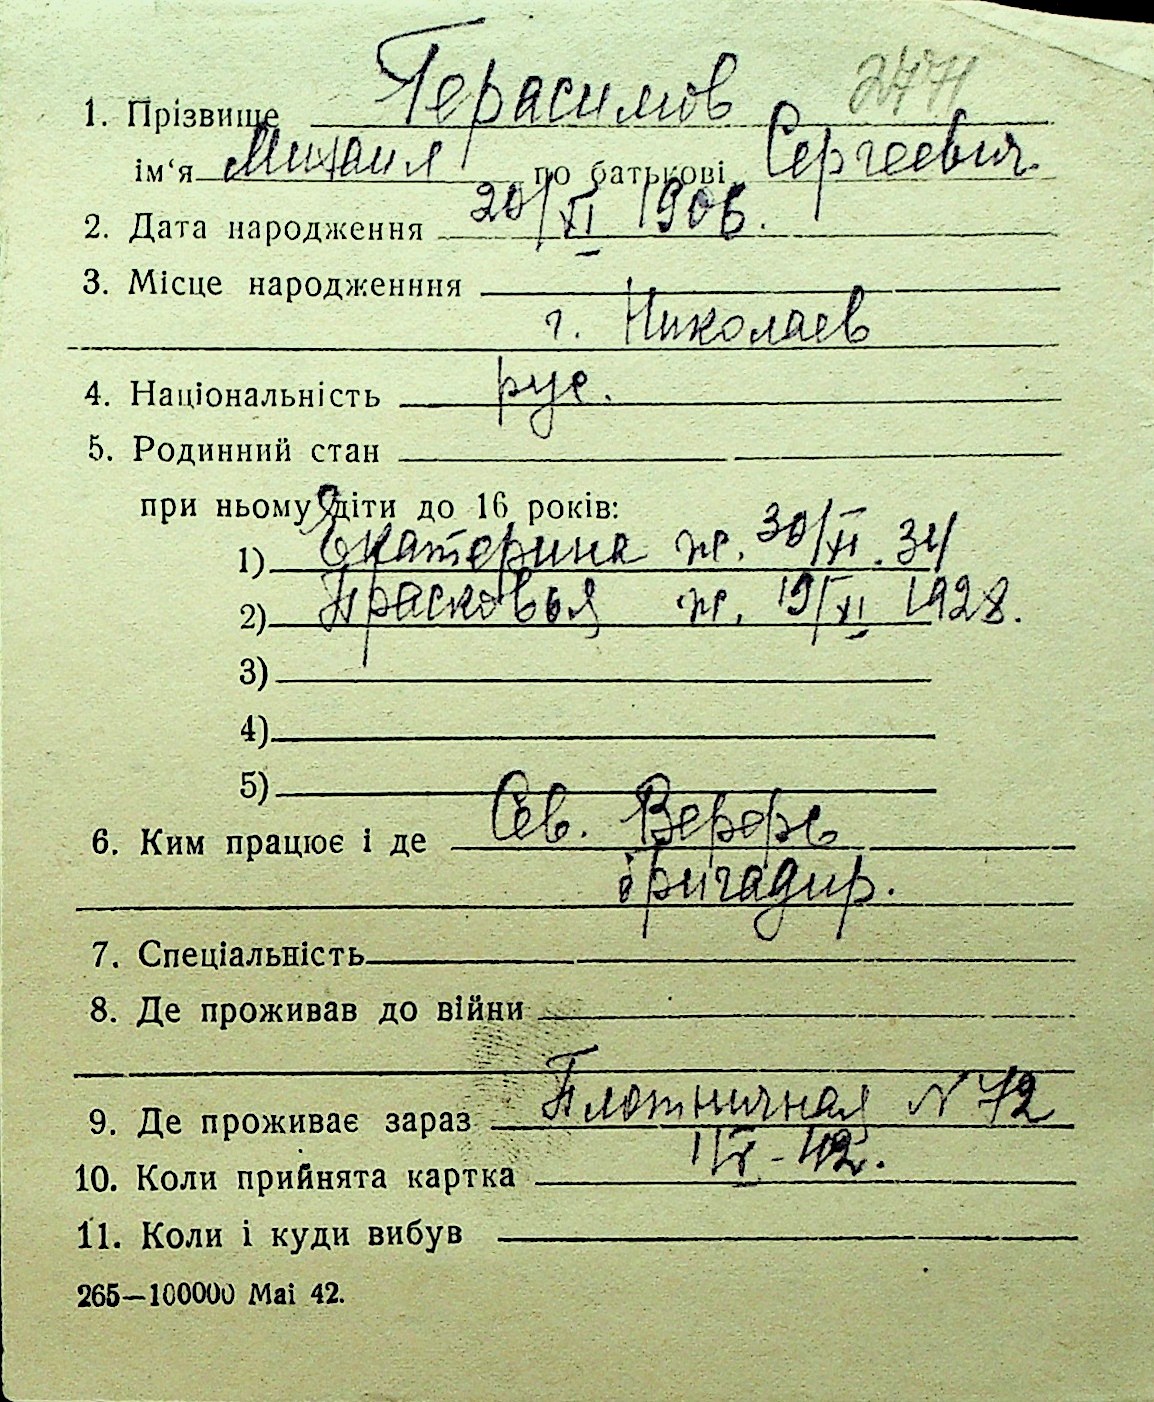 2471
1. Прізвище Герасимов
ім‘я Михаил по батькові Сергеевич
2. Дата народження 20/XI 1906.
3. Місце народженння
г. Николаев
4. Національність рус.
5. Родинний стан
при ньому діти до 16 років:
1) Екатерина ж. 30/XI. 34
2) Прасковья ж. 19/XI 1928.
3)
4)
5)
6. Ким працює і де Сев. Верфь
бригадир.
7. Спеціальність
8. Де проживав до війни
9. Де проживає зараз Плотничная N 72
10. Коли прийнята картка 1/X - 42.
11. Коли і куди вибув
265—100000 Mai 42.